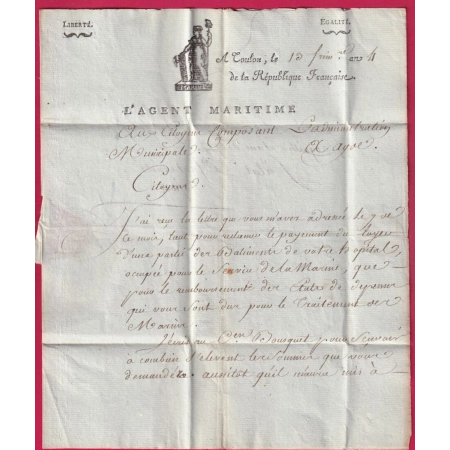 LIBERTÉ. ÉGALITÉ.
A Toulon, le 13 frim.re an 4
de la République Française.
L'AGENT MARITIME
Aux Citoyens Composant L'administration
Municipale
Citoyens,
J'ai reçu la lettre que vous m'avez adressée le 7 de
ce mois, tant pour réclamer le payement du loyer
d'une partie des Batiments de votre hopital,
occupée pour le Service de la Marine, que
pour le remboursement des Etats de depense
qui vous sont dus pour le traitement des
Marins.
J'écris au C.en Bousquet pour savoir
à combien s'elevent les sommes que vous
demandés. aussitot qu'il m'aura mis à